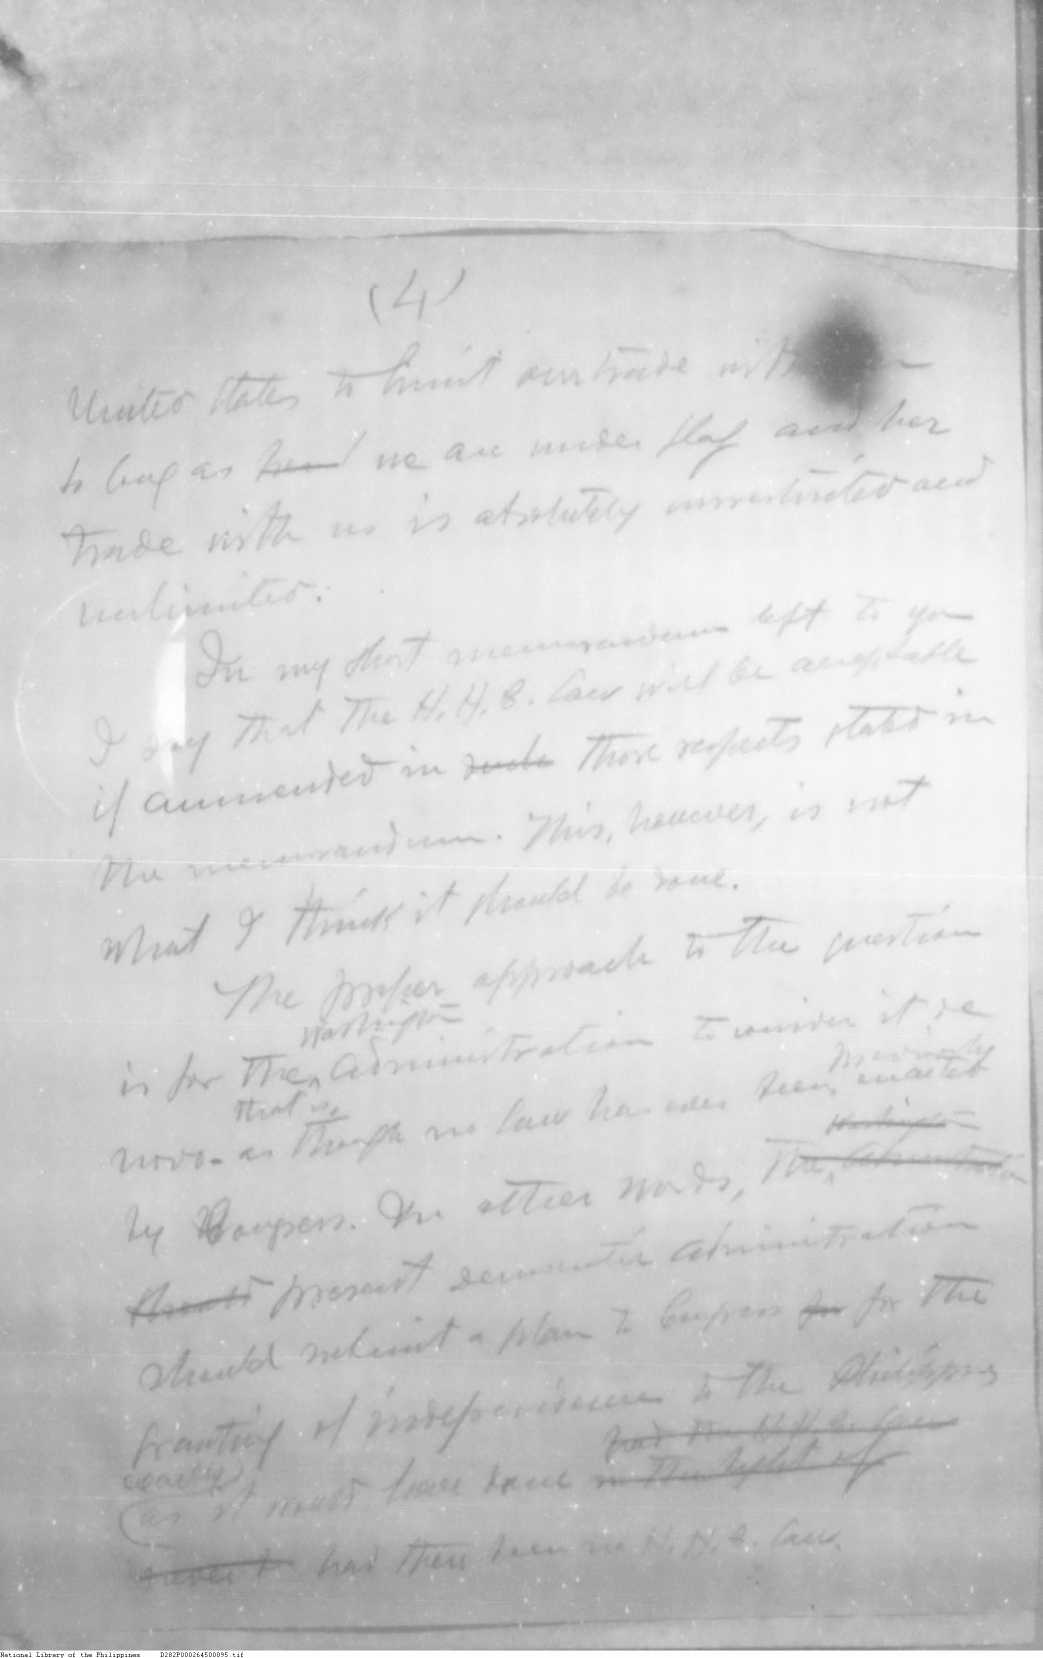 (4)
United States to limit our trade with
so long as we are under flag and her
trade with us is absolutely unrestricted and
unlimited.
In my short memorandum left to you
I say that the H. H. C. Law will be acceptable
if ammended in such those respects stated in
the memorandum. This, however, is not
what I think it should be done.
The proper approach to the question
Washington
is for the Administration to consider it de
previously
that is,
novo - as though no law has ever been enacted
Washington
by Congress. In other words, the, Administration
should present democratic administration
should submit a plan to Congress for for the
granting of independence to the Philippines
had the H. H. C. Law
exactly
as it would have done in the light of
had there been no H. H. C. Law.